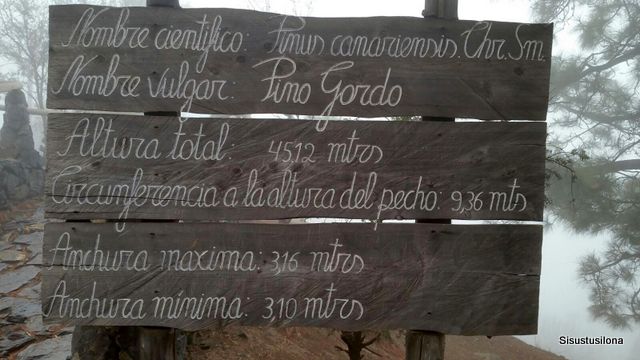 Nombre cientifico: Pinus canariensis. Chr. Sm.
Nombre vulgar: Pino Gordo
Altura total: 45,12 mtrs
Circunferencia a la altura del pecho: 9,36 mts
Anchura maxima: 3,16 mtrs
Anchura mínima: 3,10 mtrs
Sisustusilona